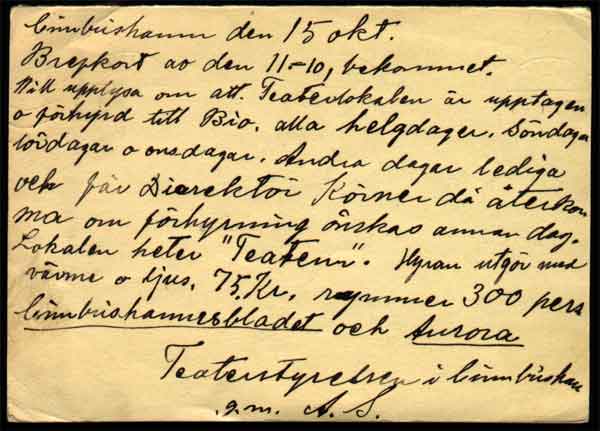 Cimbrishamn den 15 okt.
Brefkort av den 11-10, bekommet.
Vill upplysa om att. Teaterlokalen är upptagen
o förhyrd till Bio. alla helgdager. Söndagar
lördagar o onsdagar. Andra dagar lediga
och får Direktör Körner då återkom
ma om förhyrning önskas annan dag.
Lokalen heter "Teatern". Hyran utgör med
värme o ljus. 75, Kr. rymmer 300 pers
Cimbrishamnsbladet och Aurora
Teaterstyrelsen i Cimbrishamn
g.m. A. S.